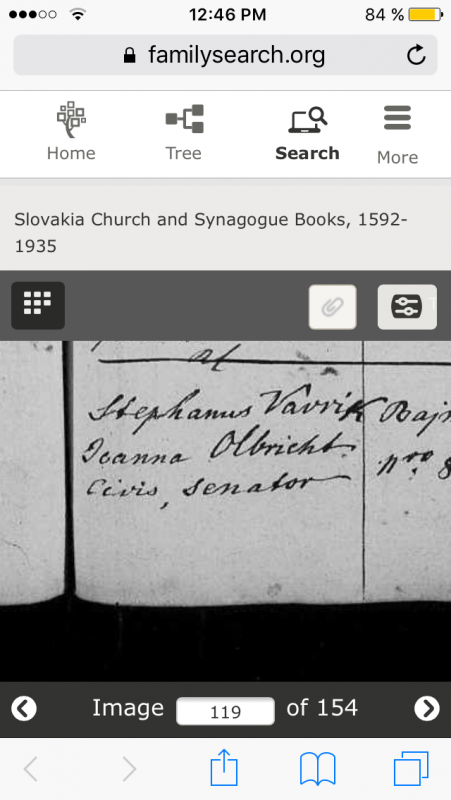 12:46 PM
84 %
familysearch.org
Home
Tree
Search
More
Slovakia Church and Synagogue Books, 1592-
1935
Stephanus Vavrik Rajn
Joanna Olbricht. nro 8
Civis, Senator
Image 119 of 154